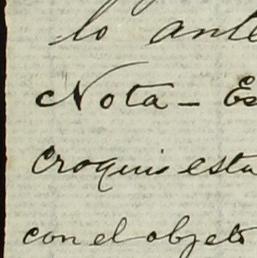 lo ante
Nota - Es
Croquis esta
con el objeto